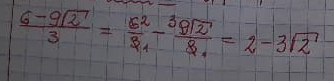 (6 − 9√2)/3 = 6²/3₁ − ³9√2/3₁ = 2 − 3√2